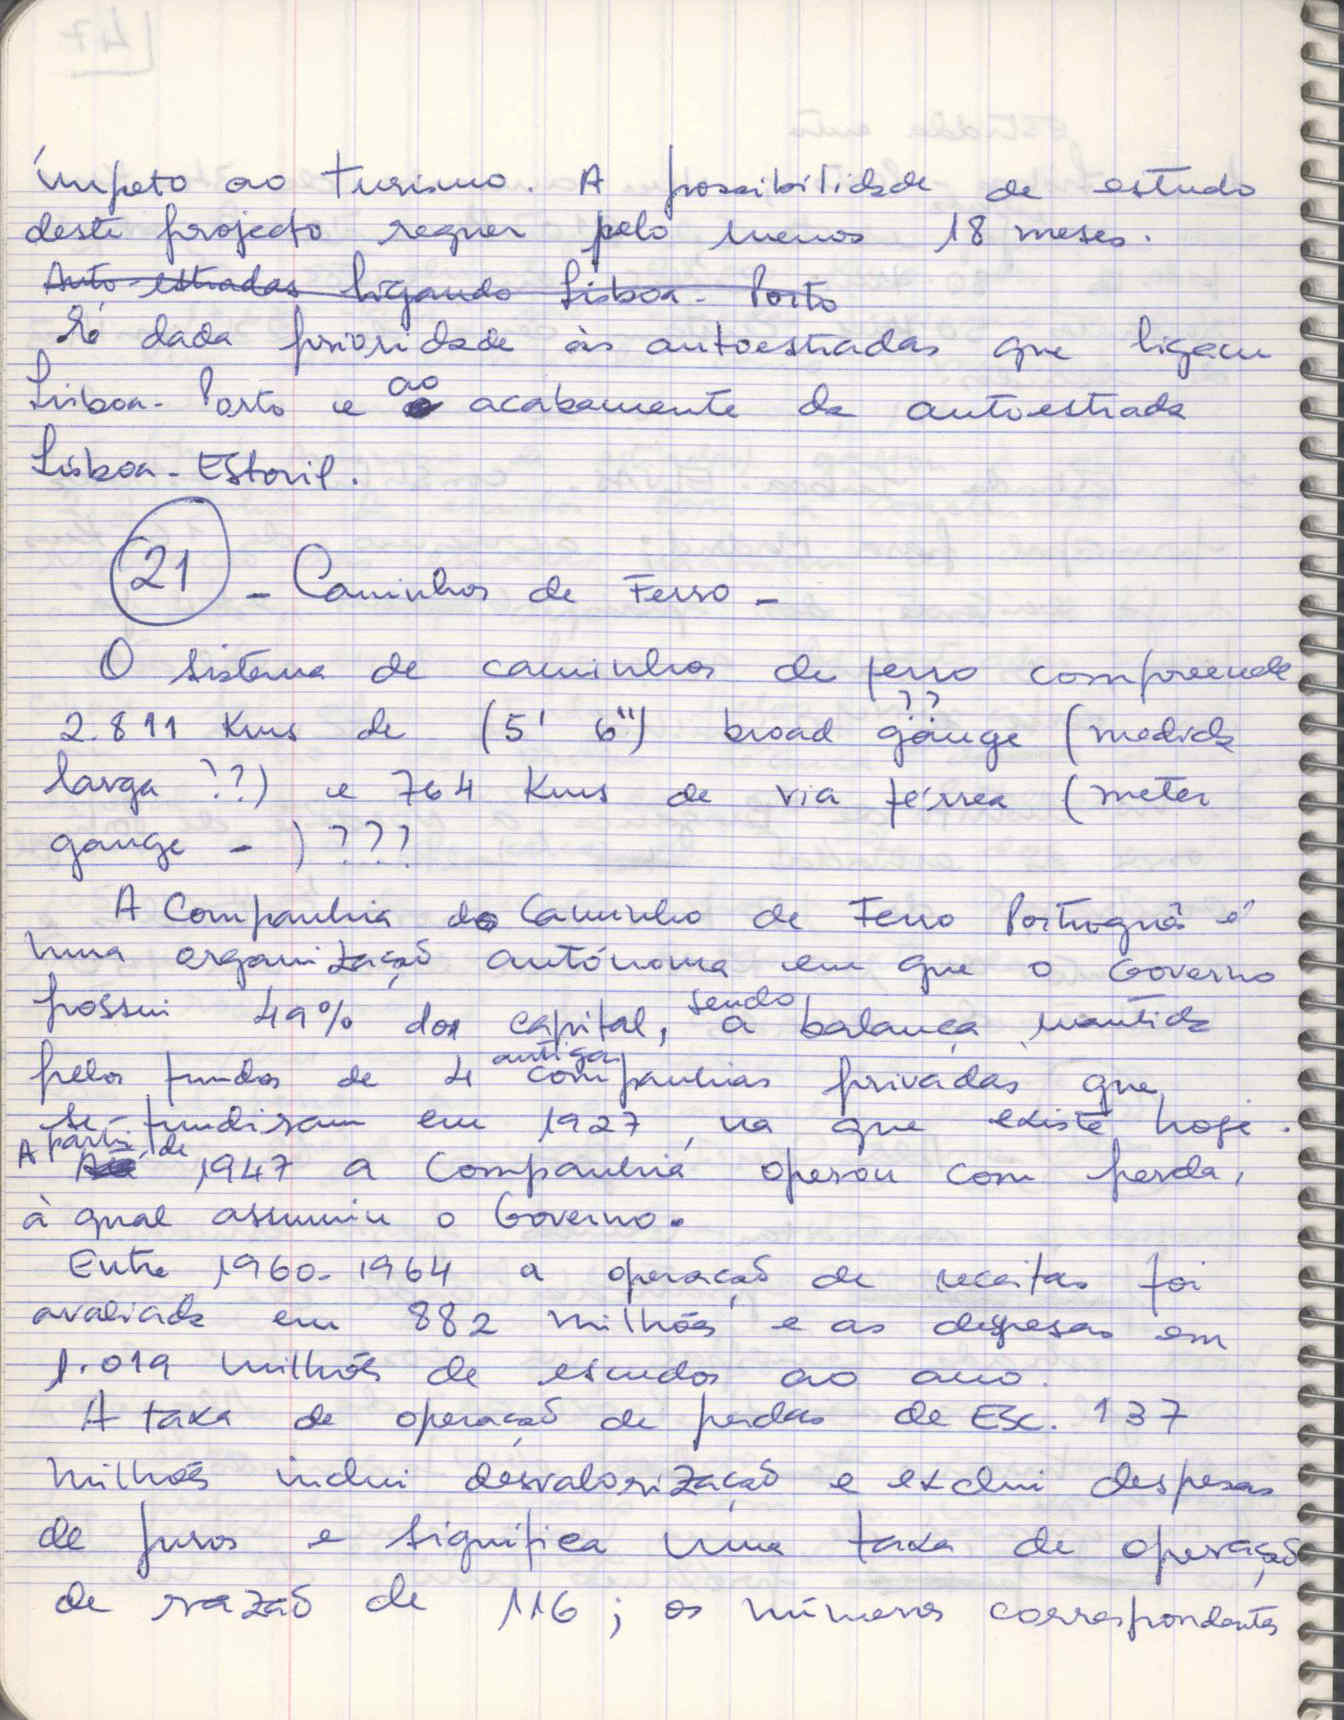 ímpeto ao turismo. A possibilidade de estudo
deste projecto requer pelo menos 18 meses.
Auto-estradas ligando Lisboa-Porto
É dada prioridade às autoestradas que ligam
Lisboa-Porto e ao acabamento da autoestrada
Lisboa-Estoril.
21 - Caminhos de Ferro -
O sistema de caminhos de ferro compreende
2.811 Kms de (5' 6") broad gauge ?? (medida
larga ??) e 764 Kms de via férrea (meter
gauge - ) ???
A Companhia do Caminho de Ferro Português é
uma organização autónoma em que o Governo
possui 49% do capital, sendo a balança mantida
pelos fundos de 4 antigas companhias privadas que
se fundiram em 1927, na que existe hoje.
A partir de 1947 a Companhia operou com perda,
à qual assumiu o Governo.
Entre 1960-1964 a operação de receitas foi
avaliada em 882 milhões e as despesas em
1.019 milhões de escudos ao ano.
A taxa de operação de perdas de Esc. 137
milhões inclui desvalorização e exclui despesas
de juros e significa uma taxa de operação
de razão de 116; os números correspondentes